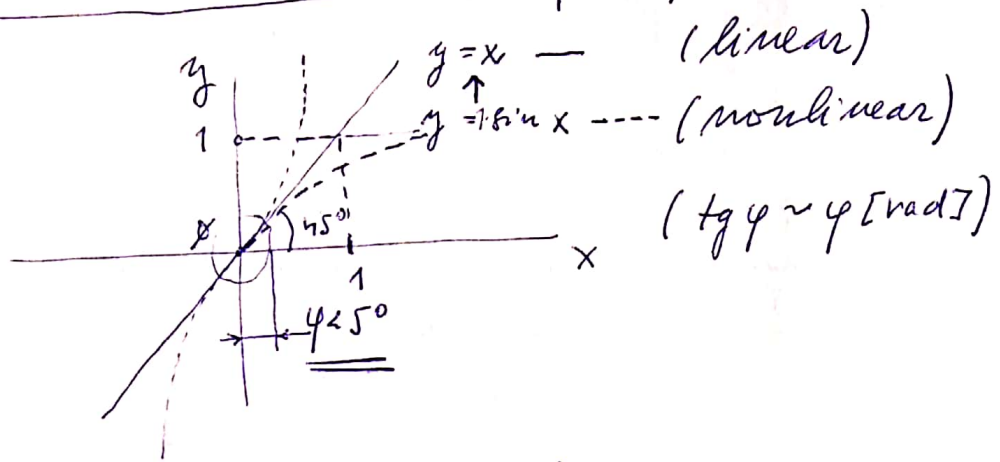 y = x — (linear)
y
1
y = 1·sin x ---- (nonlinear)
(tg φ ~ φ [rad])
45°
0
x
1
φ < 5°